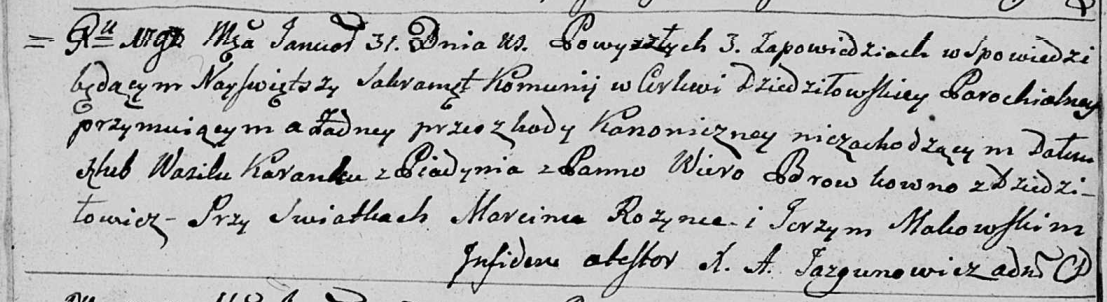 = Ru 1798 Mca Januar 31. Dnia us. Powyszłych 3. Zapowiedziach w Spowiedzi
będącym Nayswiętszy Sakramęt Komunij w Cerkwi Dziedziłowskiey Parochialney
przymuiącym a Żadney przeszkody Kanoniczney niezachodzącym Dałem
szlub Wasilu Karanku z Piadynia z Panno Wiero Browkowno z Dziedzi-
łowicz - Przy Swiatkach Marcinu Rozynce i Jerzym Makowskim
Infidem atestor X. A. Jazgunowicz adm